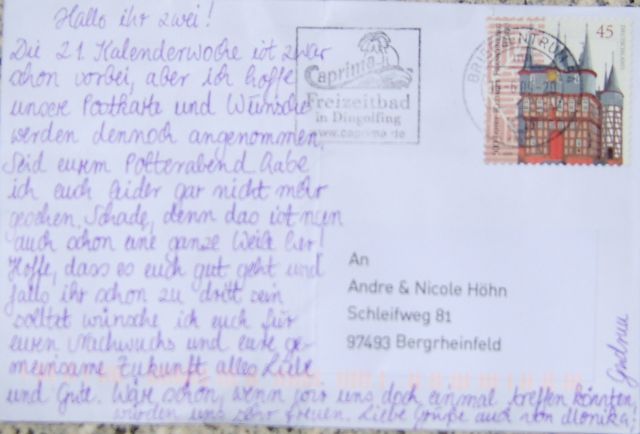 Hallo ihr zwei!
Die 21. Kalenderwoche ist zwar
schon vorbei, aber ich hoffe
unsere Postkarte und Wünsche
werden dennoch angenommen.
Seid eurem Polterabend habe
ich euch leider gar nicht mehr
gesehen. Schade, denn das ist nun
auch schon eine ganze Weile her!
Hoffe, dass es euch gut geht und
falls ihr schon zu dritt sein
solltet wünsche ich euch für
euren Nachwuchs und eure ge-
meinsame Zukunft alles Liebe
und Gute. Wäre schön, wenn wir uns doch einmal treffen könnten,
würden uns sehr freuen. Liebe Grüße auch von Monika,
Caprima
Freizeitbad
in Dingolfing
www.caprima.de
BRIEFZENTRUM
45
An
Andre & Nicole Höhn
Schleifweg 81
97493 Bergrheinfeld